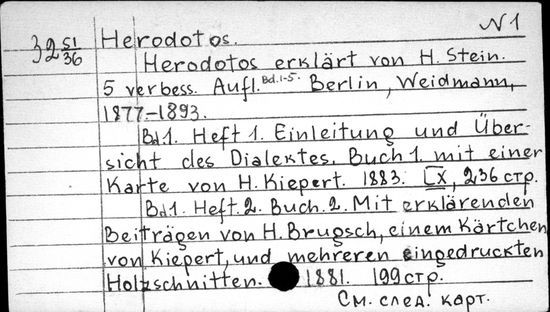 N 1
32 51/36 Herodotos.
Herodotos erklärt von H. Stein.
5 verbess. Aufl. Bd.1-5. Berlin, Weidmann,
1877-1893.
Bd1. Heft 1. Einleitung und Über-
sicht des Dialektes. Buch 1. mit einer
Karte von H. Kiepert. 1883. LX, 236 стр.
Bd1. Heft. 2. Buch. 2. Mit erklärenden
Beiträgen von H. Brugsch, einem Kärtchen
von Kiepert, und mehreren eingedruckten
Holzschnitten. 1881. 199 стр.
См. след. карт.